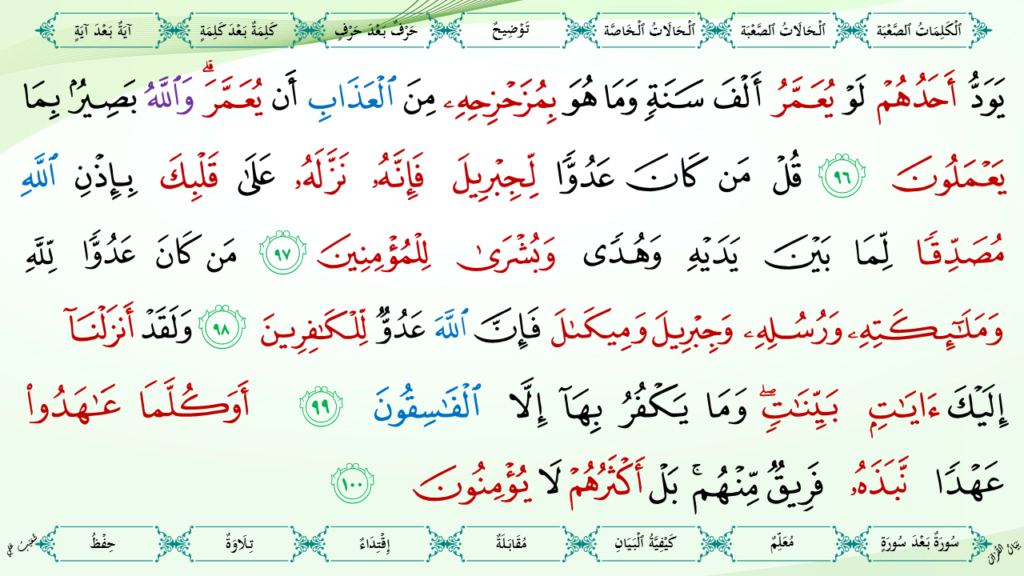 اَلْكَلِمَاتُ الصَّعْبَة اَلْحَالَاتُ الصَّعْبَة اَلْحَالَاتُ الْخَاصَّة تَوْضِيحٌ حَرْفٌ بَعْدَ حَرْفٍ كَلِمَةٌ بَعْدَ كَلِمَةٍ آيَةٌ بَعْدَ آيَةٍ
يَوَدُّ أَحَدُهُمْ لَوْ يُعَمَّرُ أَلْفَ سَنَةٍ وَمَا هُوَ بِمُزَحْزِحِهِۦ مِنَ ٱلْعَذَابِ أَن يُعَمَّرَ ۗ وَٱللَّهُ بَصِيرٌۢ بِمَا
يَعْمَلُونَ ٩٦ قُلْ مَن كَانَ عَدُوًّا لِّجِبْرِيلَ فَإِنَّهُۥ نَزَّلَهُۥ عَلَىٰ قَلْبِكَ بِإِذْنِ ٱللَّهِ
مُصَدِّقًا لِّمَا بَيْنَ يَدَيْهِ وَهُدًى وَبُشْرَىٰ لِلْمُؤْمِنِينَ ٩٧ مَن كَانَ عَدُوًّا لِّلَّهِ
وَمَلَـٰٓئِكَتِهِۦ وَرُسُلِهِۦ وَجِبْرِيلَ وَمِيكَىٰلَ فَإِنَّ ٱللَّهَ عَدُوٌّ لِّلْكَـٰفِرِينَ ٩٨ وَلَقَدْ أَنزَلْنَآ
إِلَيْكَ ءَايَـٰتٍۭ بَيِّنَـٰتٍ ۖ وَمَا يَكْفُرُ بِهَآ إِلَّا ٱلْفَـٰسِقُونَ ٩٩ أَوَكُلَّمَا عَـٰهَدُوا۟
عَهْدًا نَّبَذَهُۥ فَرِيقٌ مِّنْهُم ۚ بَلْ أَكْثَرُهُمْ لَا يُؤْمِنُونَ ١٠٠
سُورَةٌ بَعْدَ سُورَةٍ مُعَلِّمٌ كَيْفِيَّةُ الْبَيَانِ مُقَابَلَةٌ إِقْتِدَاءٌ تِلَاوَةٌ حِفْظٌ
بَيَانُ الْقُرْآنِ